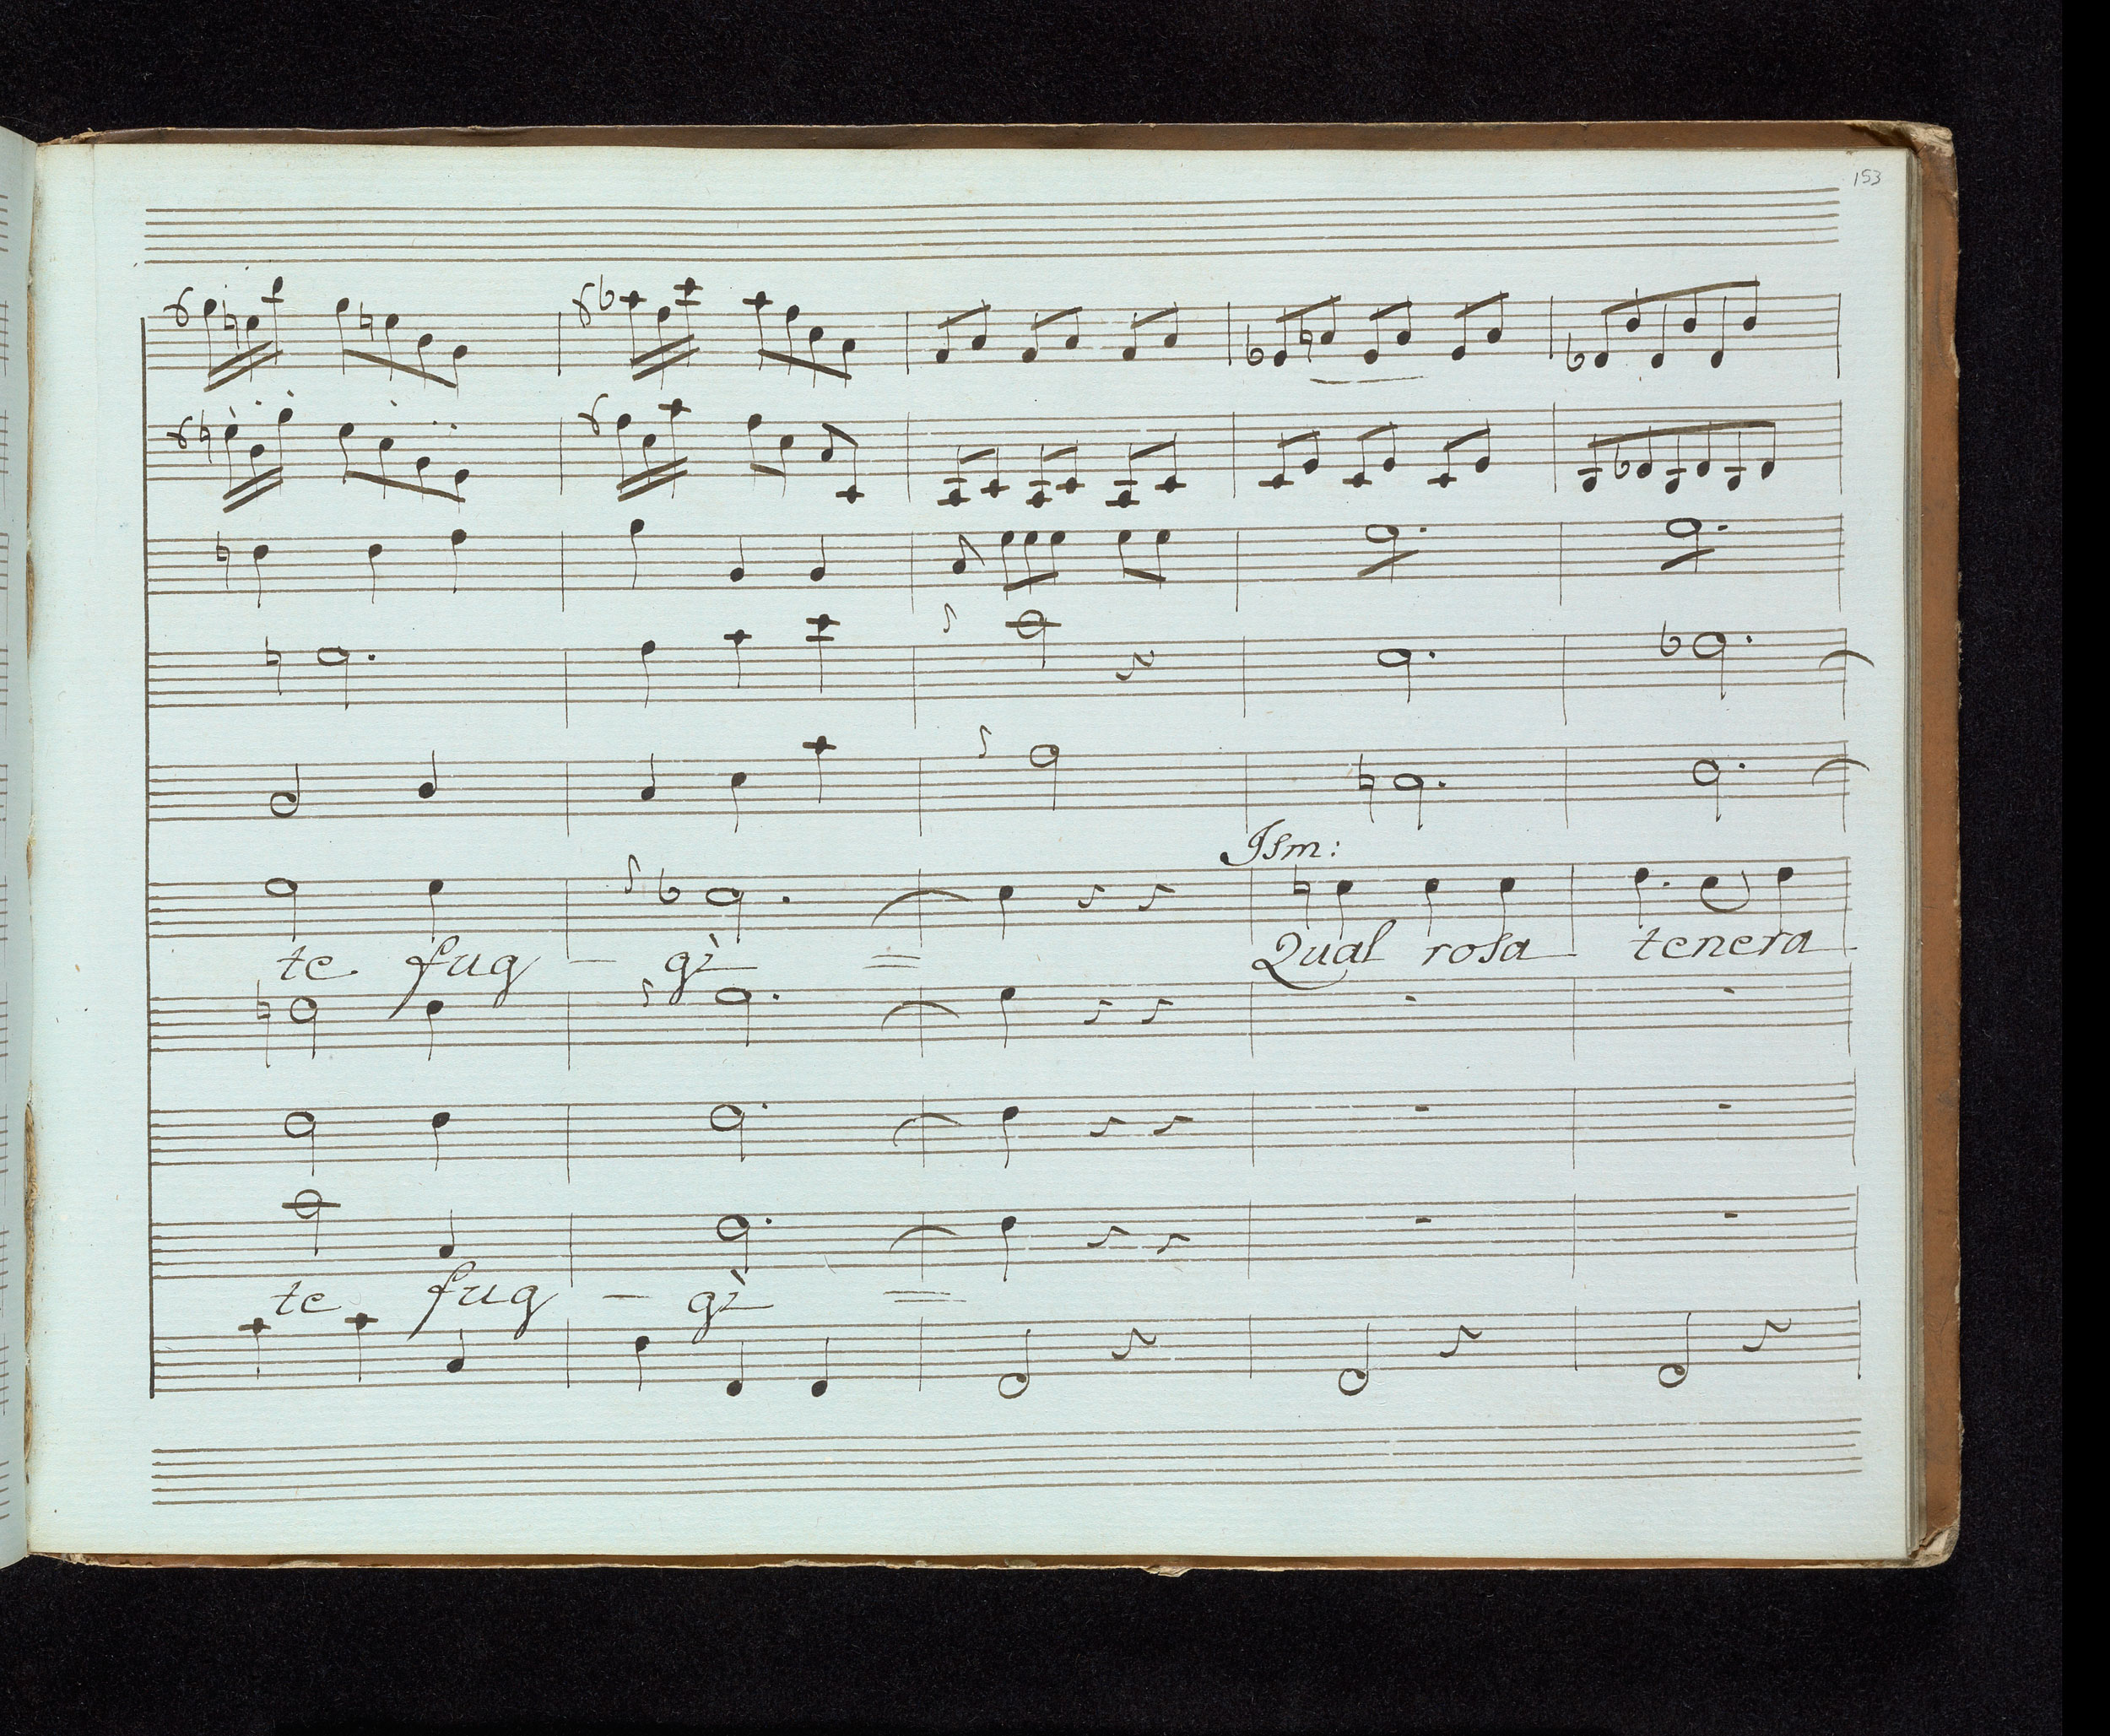 153
Ism:
te fug – gì = Qual rosa tenera
te fug – gì =